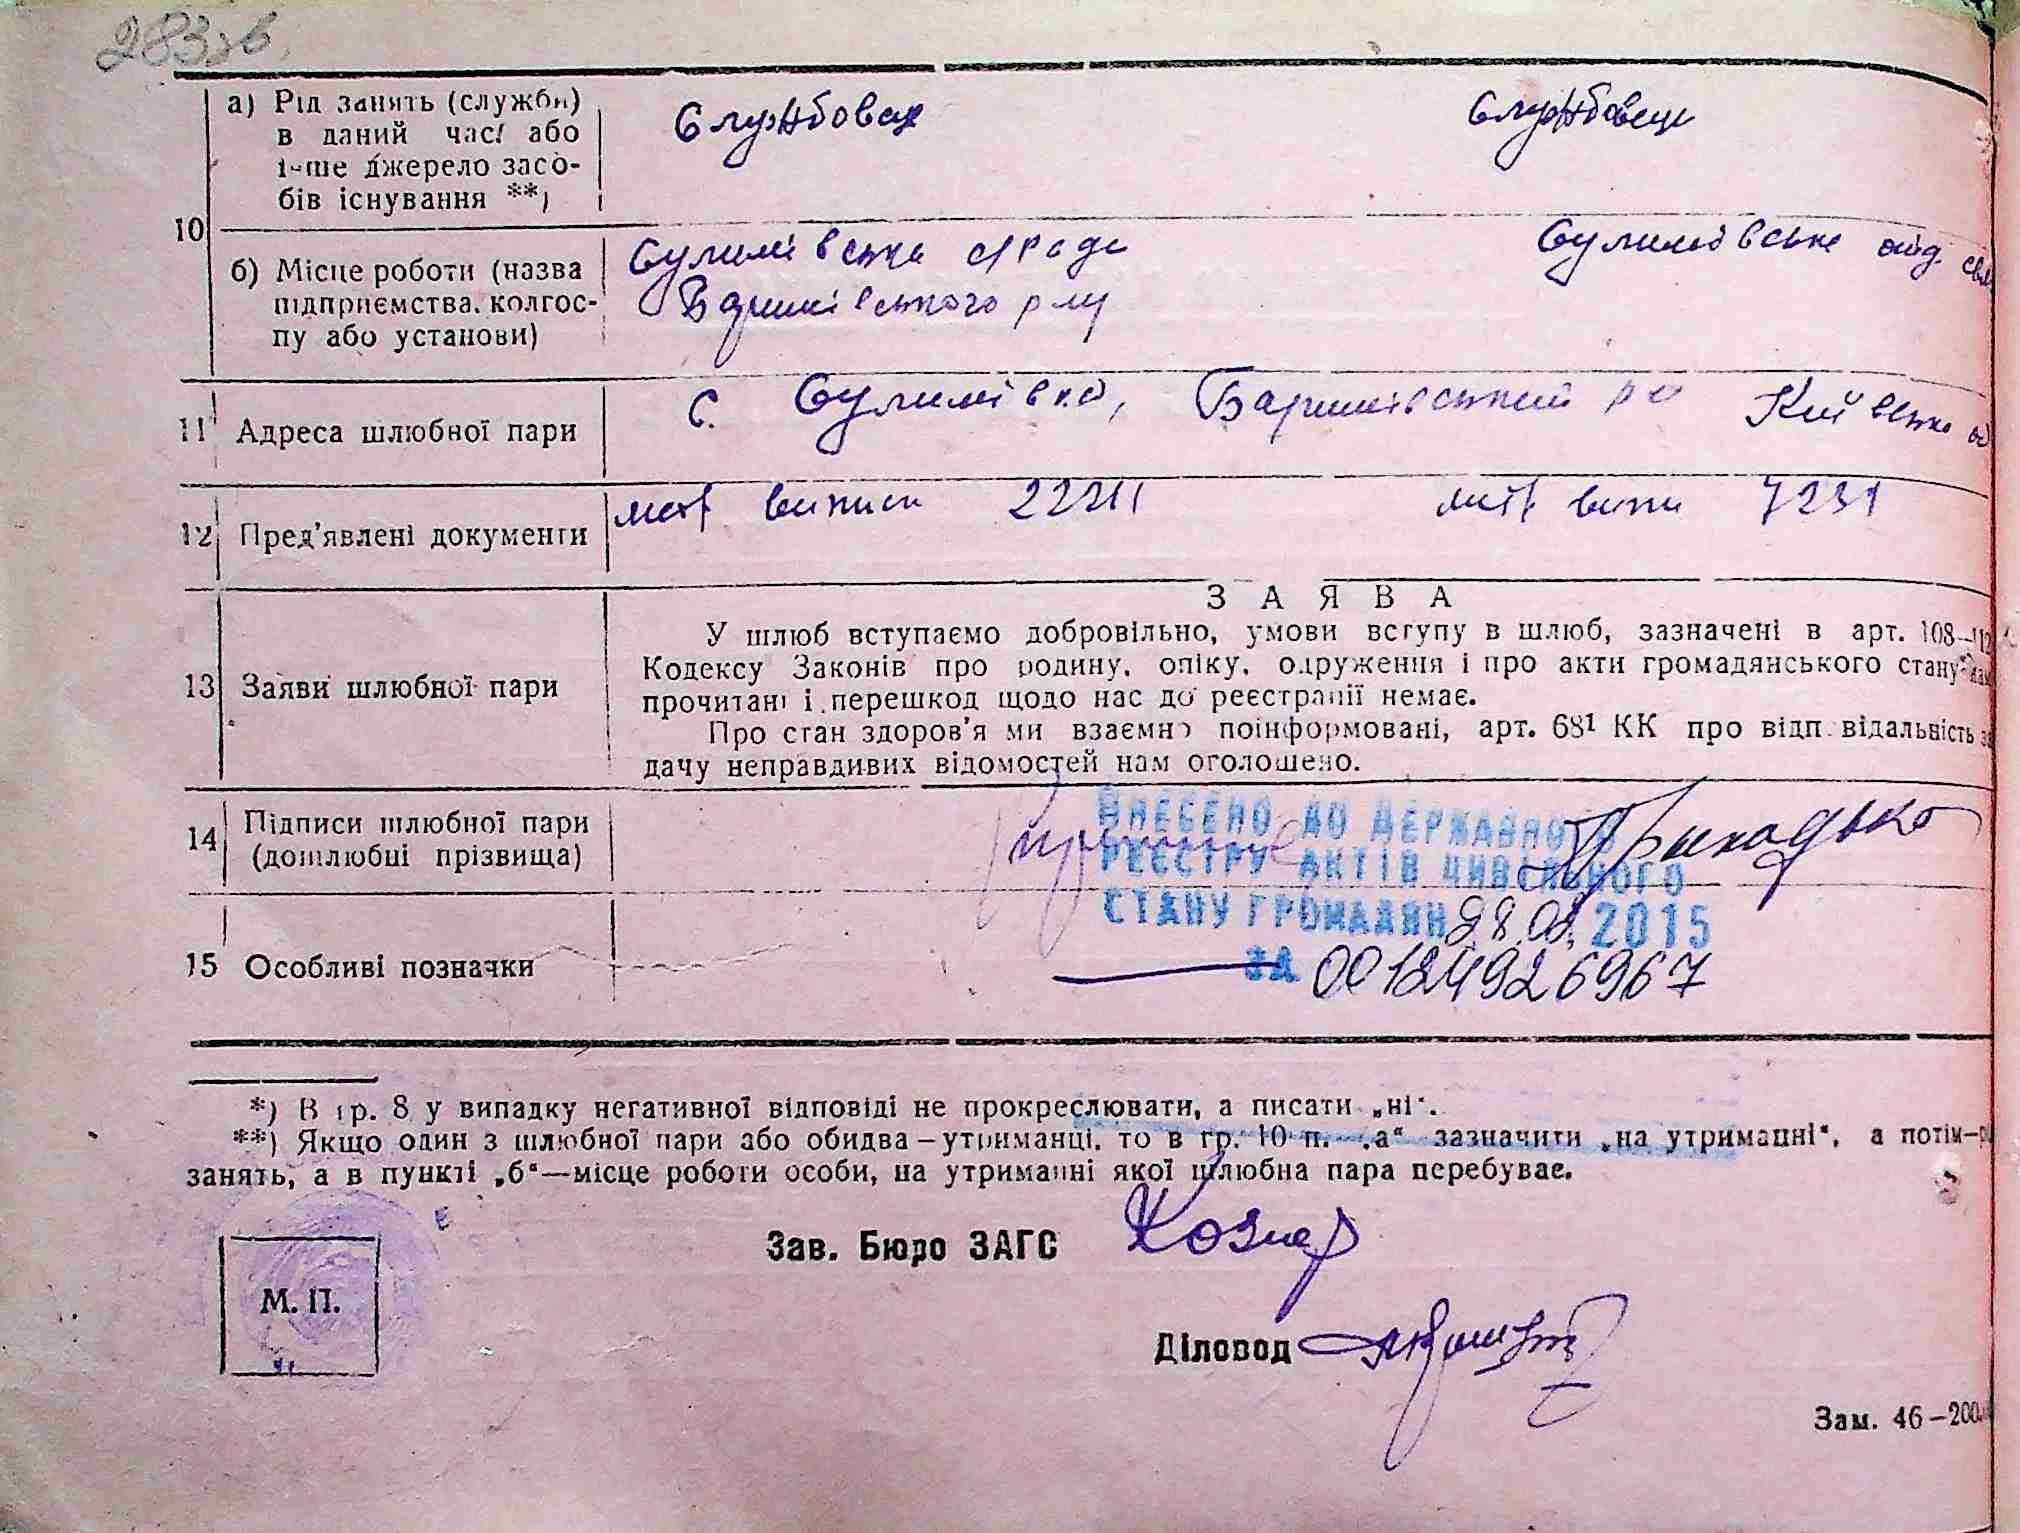 283зв
а) Рід занять (служби)
в даний час або
інше джерело засо-
бів існування **)
Службовец Службовець
10
б) Місце роботи (назва
підприємства, колгос-
пу або установи)
Сулимівська с/рада Сулимівське
Баришівського р-ну
11 Адреса шлюбної пари
с. Сулимівка, Баришівський р Київська об
12 Пред'явлені документи
метр виписи метр випи 7231
ЗАЯВА
13 Заяви шлюбної пари
У шлюб вступаємо добровільно, умови вступу в шлюб, зазначені в арт. 108–112
Кодексу Законів про родину, опіку, одруження і про акти громадянського стану нам
прочитані і перешкод щодо нас до реєстрації немає.
Про стан здоров'я ми взаємно поінформовані, арт. 68¹ КК про відповідальність за
дачу неправдивих відомостей нам оголошено.
14 Підписи шлюбної пари
(дошлюбні прізвища)
Приходько
ВНЕСЕНО ДО ДЕРЖАВНОГО
РЕЄСТРУ АКТІВ ЦИВІЛЬНОГО
СТАНУ ГРОМАДЯН 28.02.2015
15 Особливі позначки
ЗА 00124926967
*) В гр. 8 у випадку негативної відповіді не прокреслювати, а писати „ні“.
**) Якщо один з шлюбної пари або обидва–утриманці, то в гр. 10 п. „а“ зазначити „на утриманні“, а потім–р
занять, а в пункті „б“—місце роботи особи, на утриманні якої шлюбна пара перебуває.
Зав. Бюро ЗАГС
М. П.
Діловод
Зам. 46–200